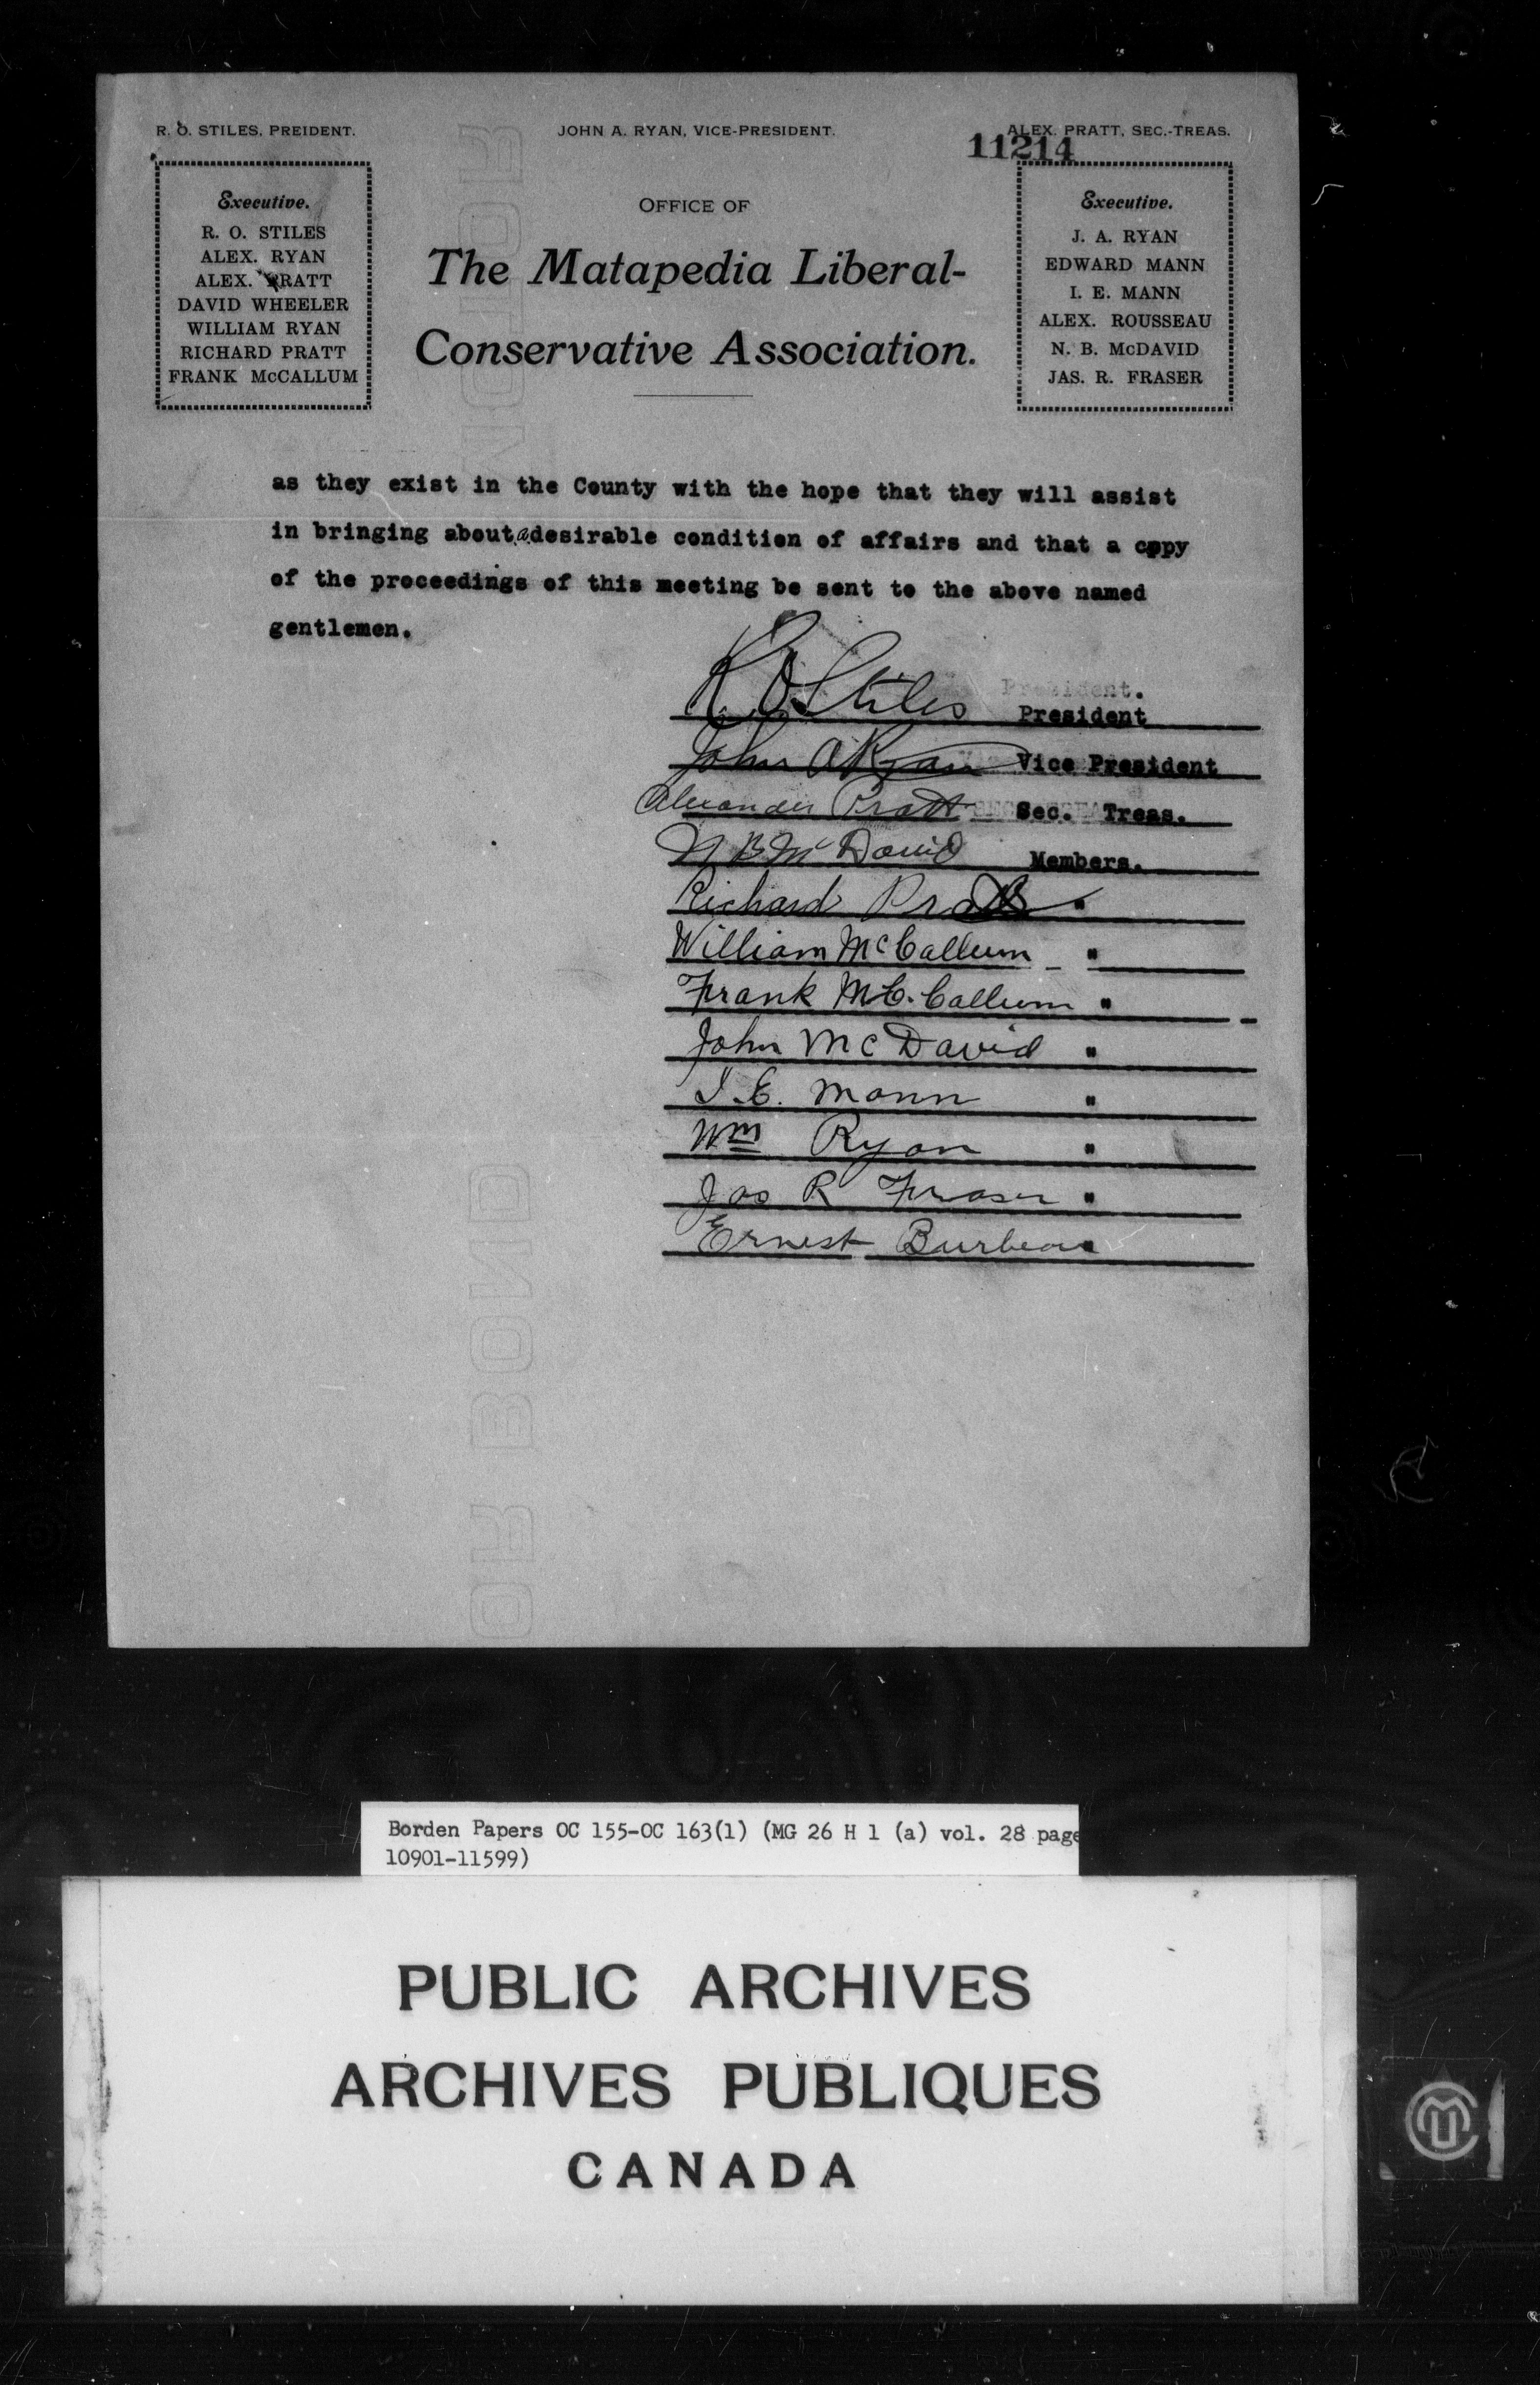 R. O. STILES, PREIDENT.
JOHN A. RYAN, VICE-PRESIDENT.
ALEX. PRATT, SEC.-TREAS.
11214
Executive.
R. O. STILES
ALEX. RYAN
ALEX. PRATT
DAVID WHEELER
WILLIAM RYAN
RICHARD PRATT
FRANK McCALLUM
OFFICE OF
The Matapedia Liberal-
Conservative Association.
Executive.
J. A. RYAN
EDWARD MANN
I. E. MANN
ALEX. ROUSSEAU
N. B. McDAVID
JAS. R. FRASER
as they exist in the County with the hope that they will assist
in bringing about a desirable condition of affairs and that a copy
of the proceedings of this meeting be sent to the above named
gentlemen.
President.
R O Stiles President
John A Ryan Vice President
Alexander Pratt Sec. Treas.
N B Mc David Members.
Richard Pratt "
William McCallum "
Frank Mc. Callum "
John Mc David "
I. E. Mann "
Wm Ryan "
Jas R Fraser "
Ernest
OK BOND
Borden Papers OC 155-OC 163(1) (MG 26 H 1 (a) vol. 28 page
10901-11599)
PUBLIC ARCHIVES
ARCHIVES PUBLIQUES
CANADA